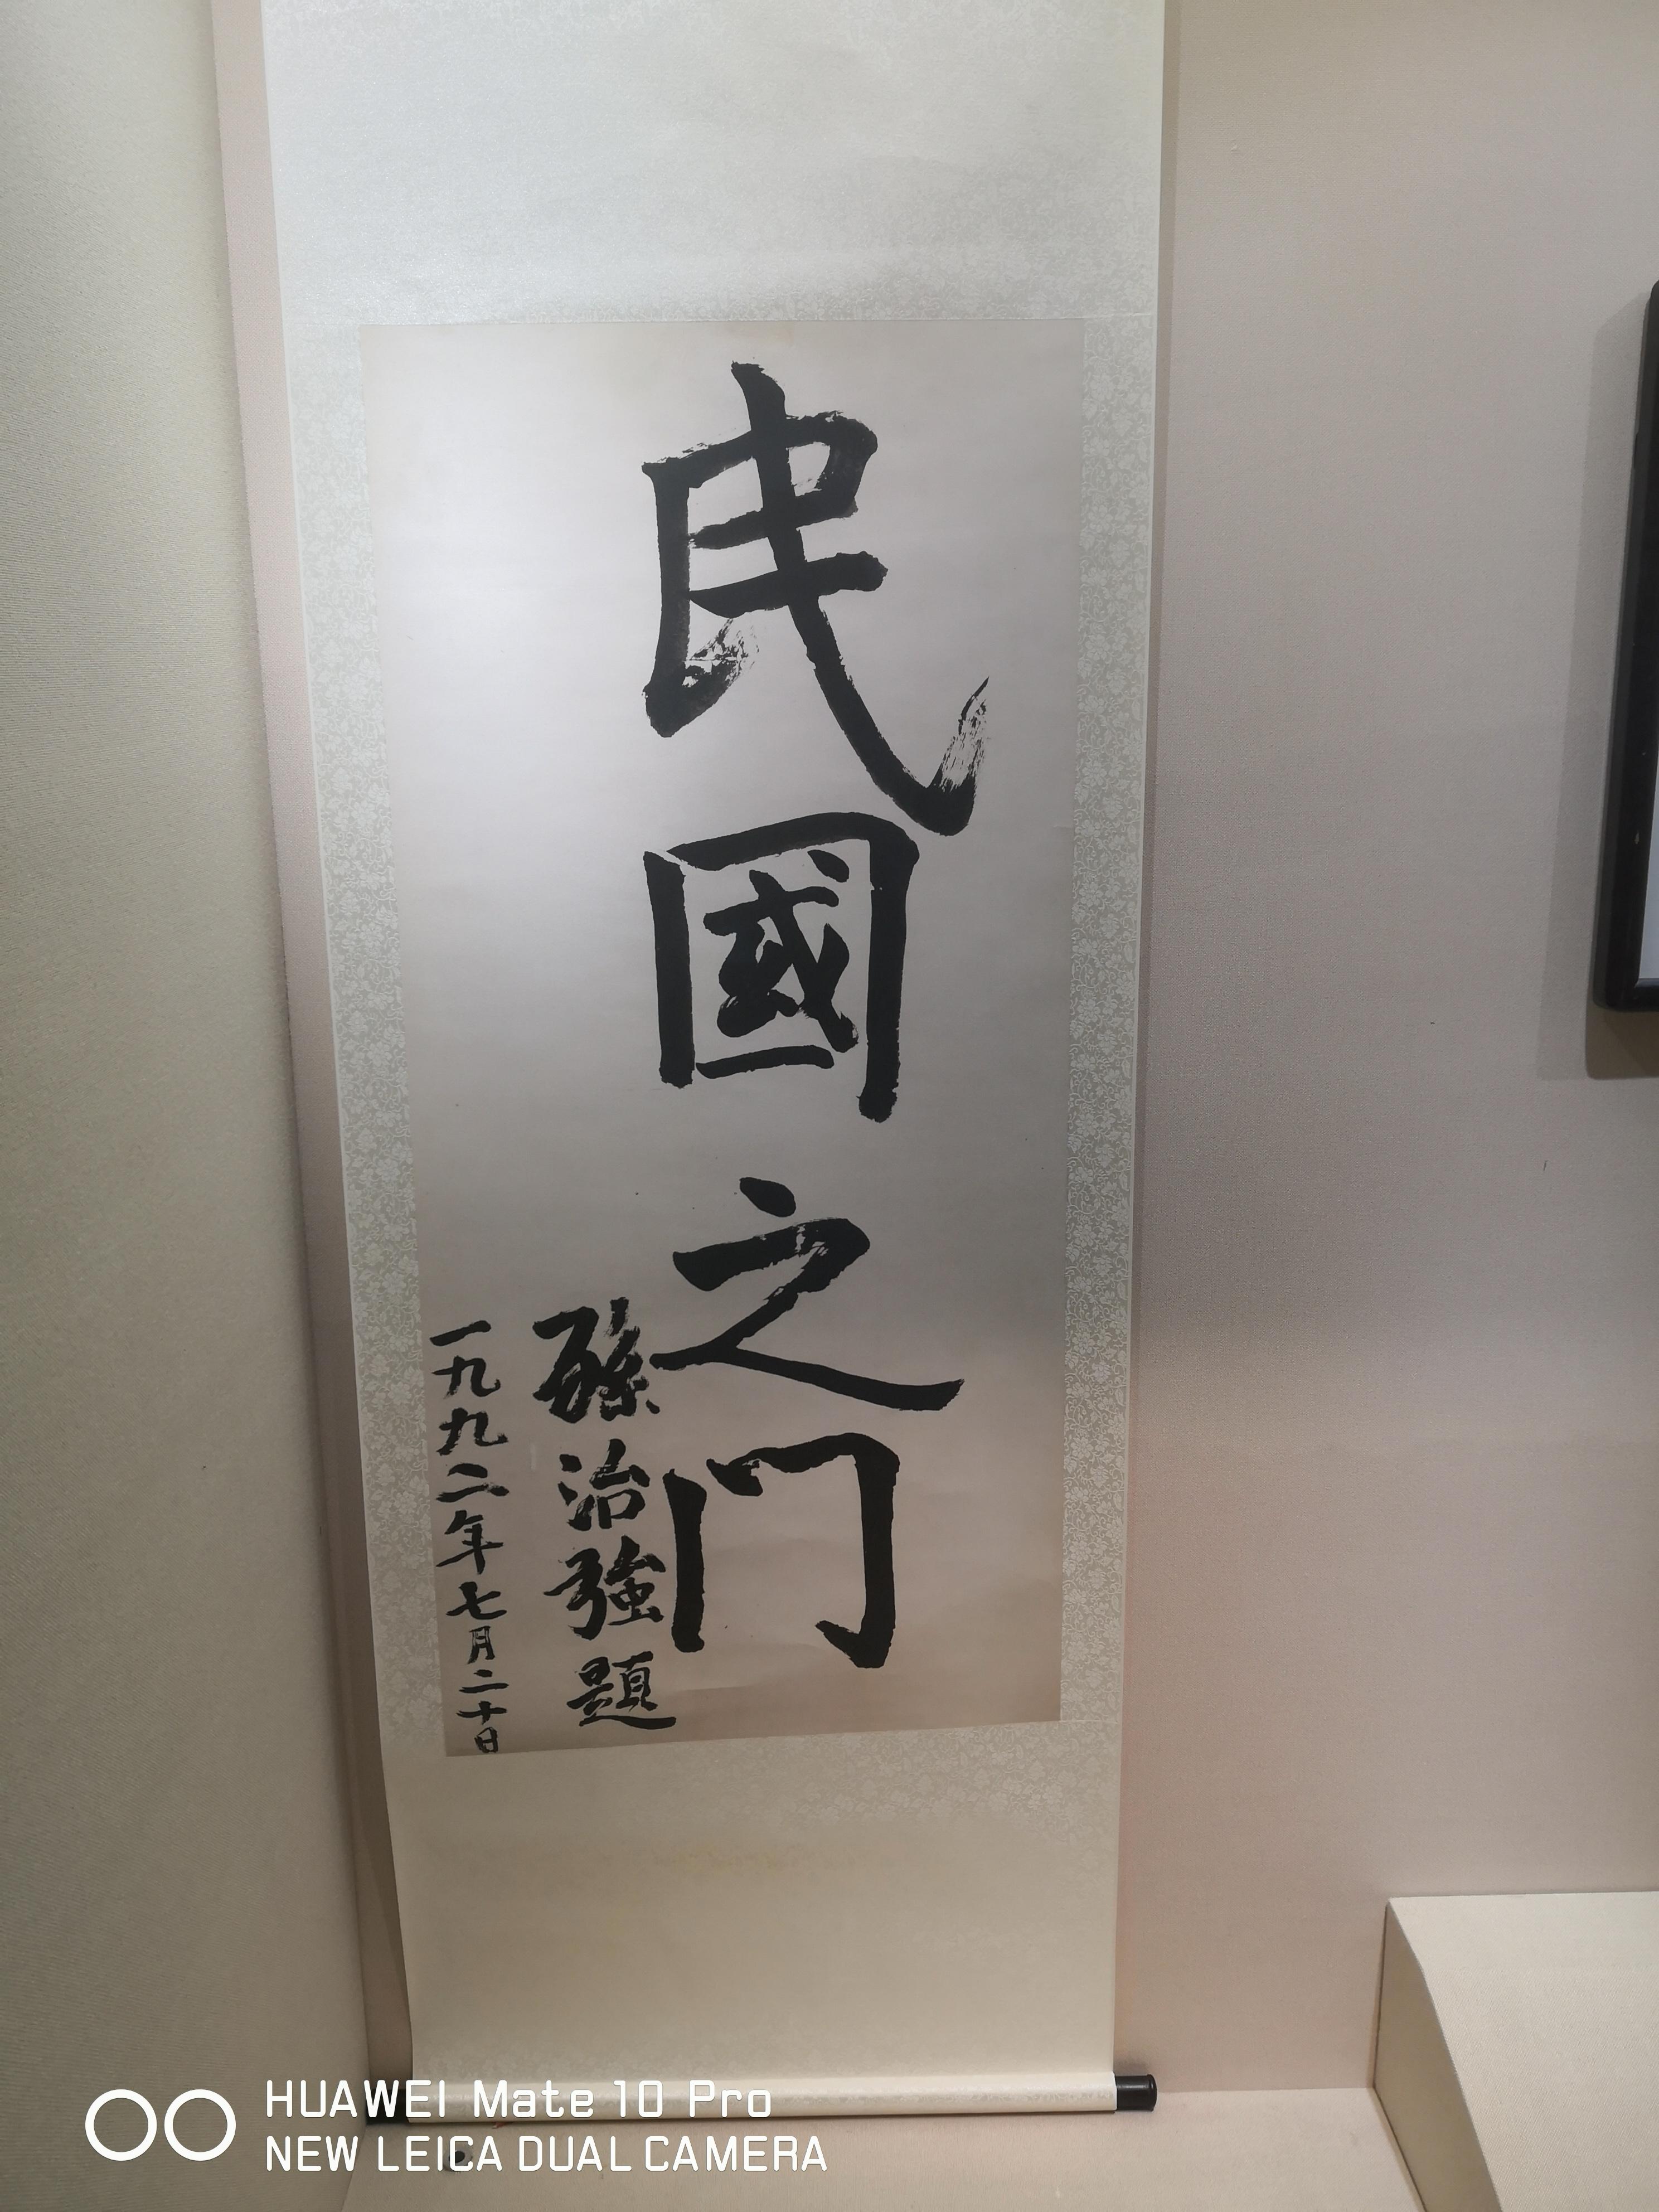 民國之门
孫治強題
一九九二年七月二十日
HUAWEI Mate 10 Pro
NEW LEICA DUAL CAMERA